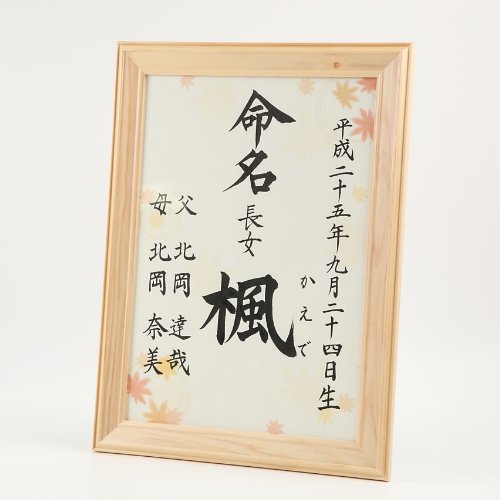 平成二十五年九月二十四日生
命名
長女
楓
かえで
父 北岡 達哉
母 北岡 奈美